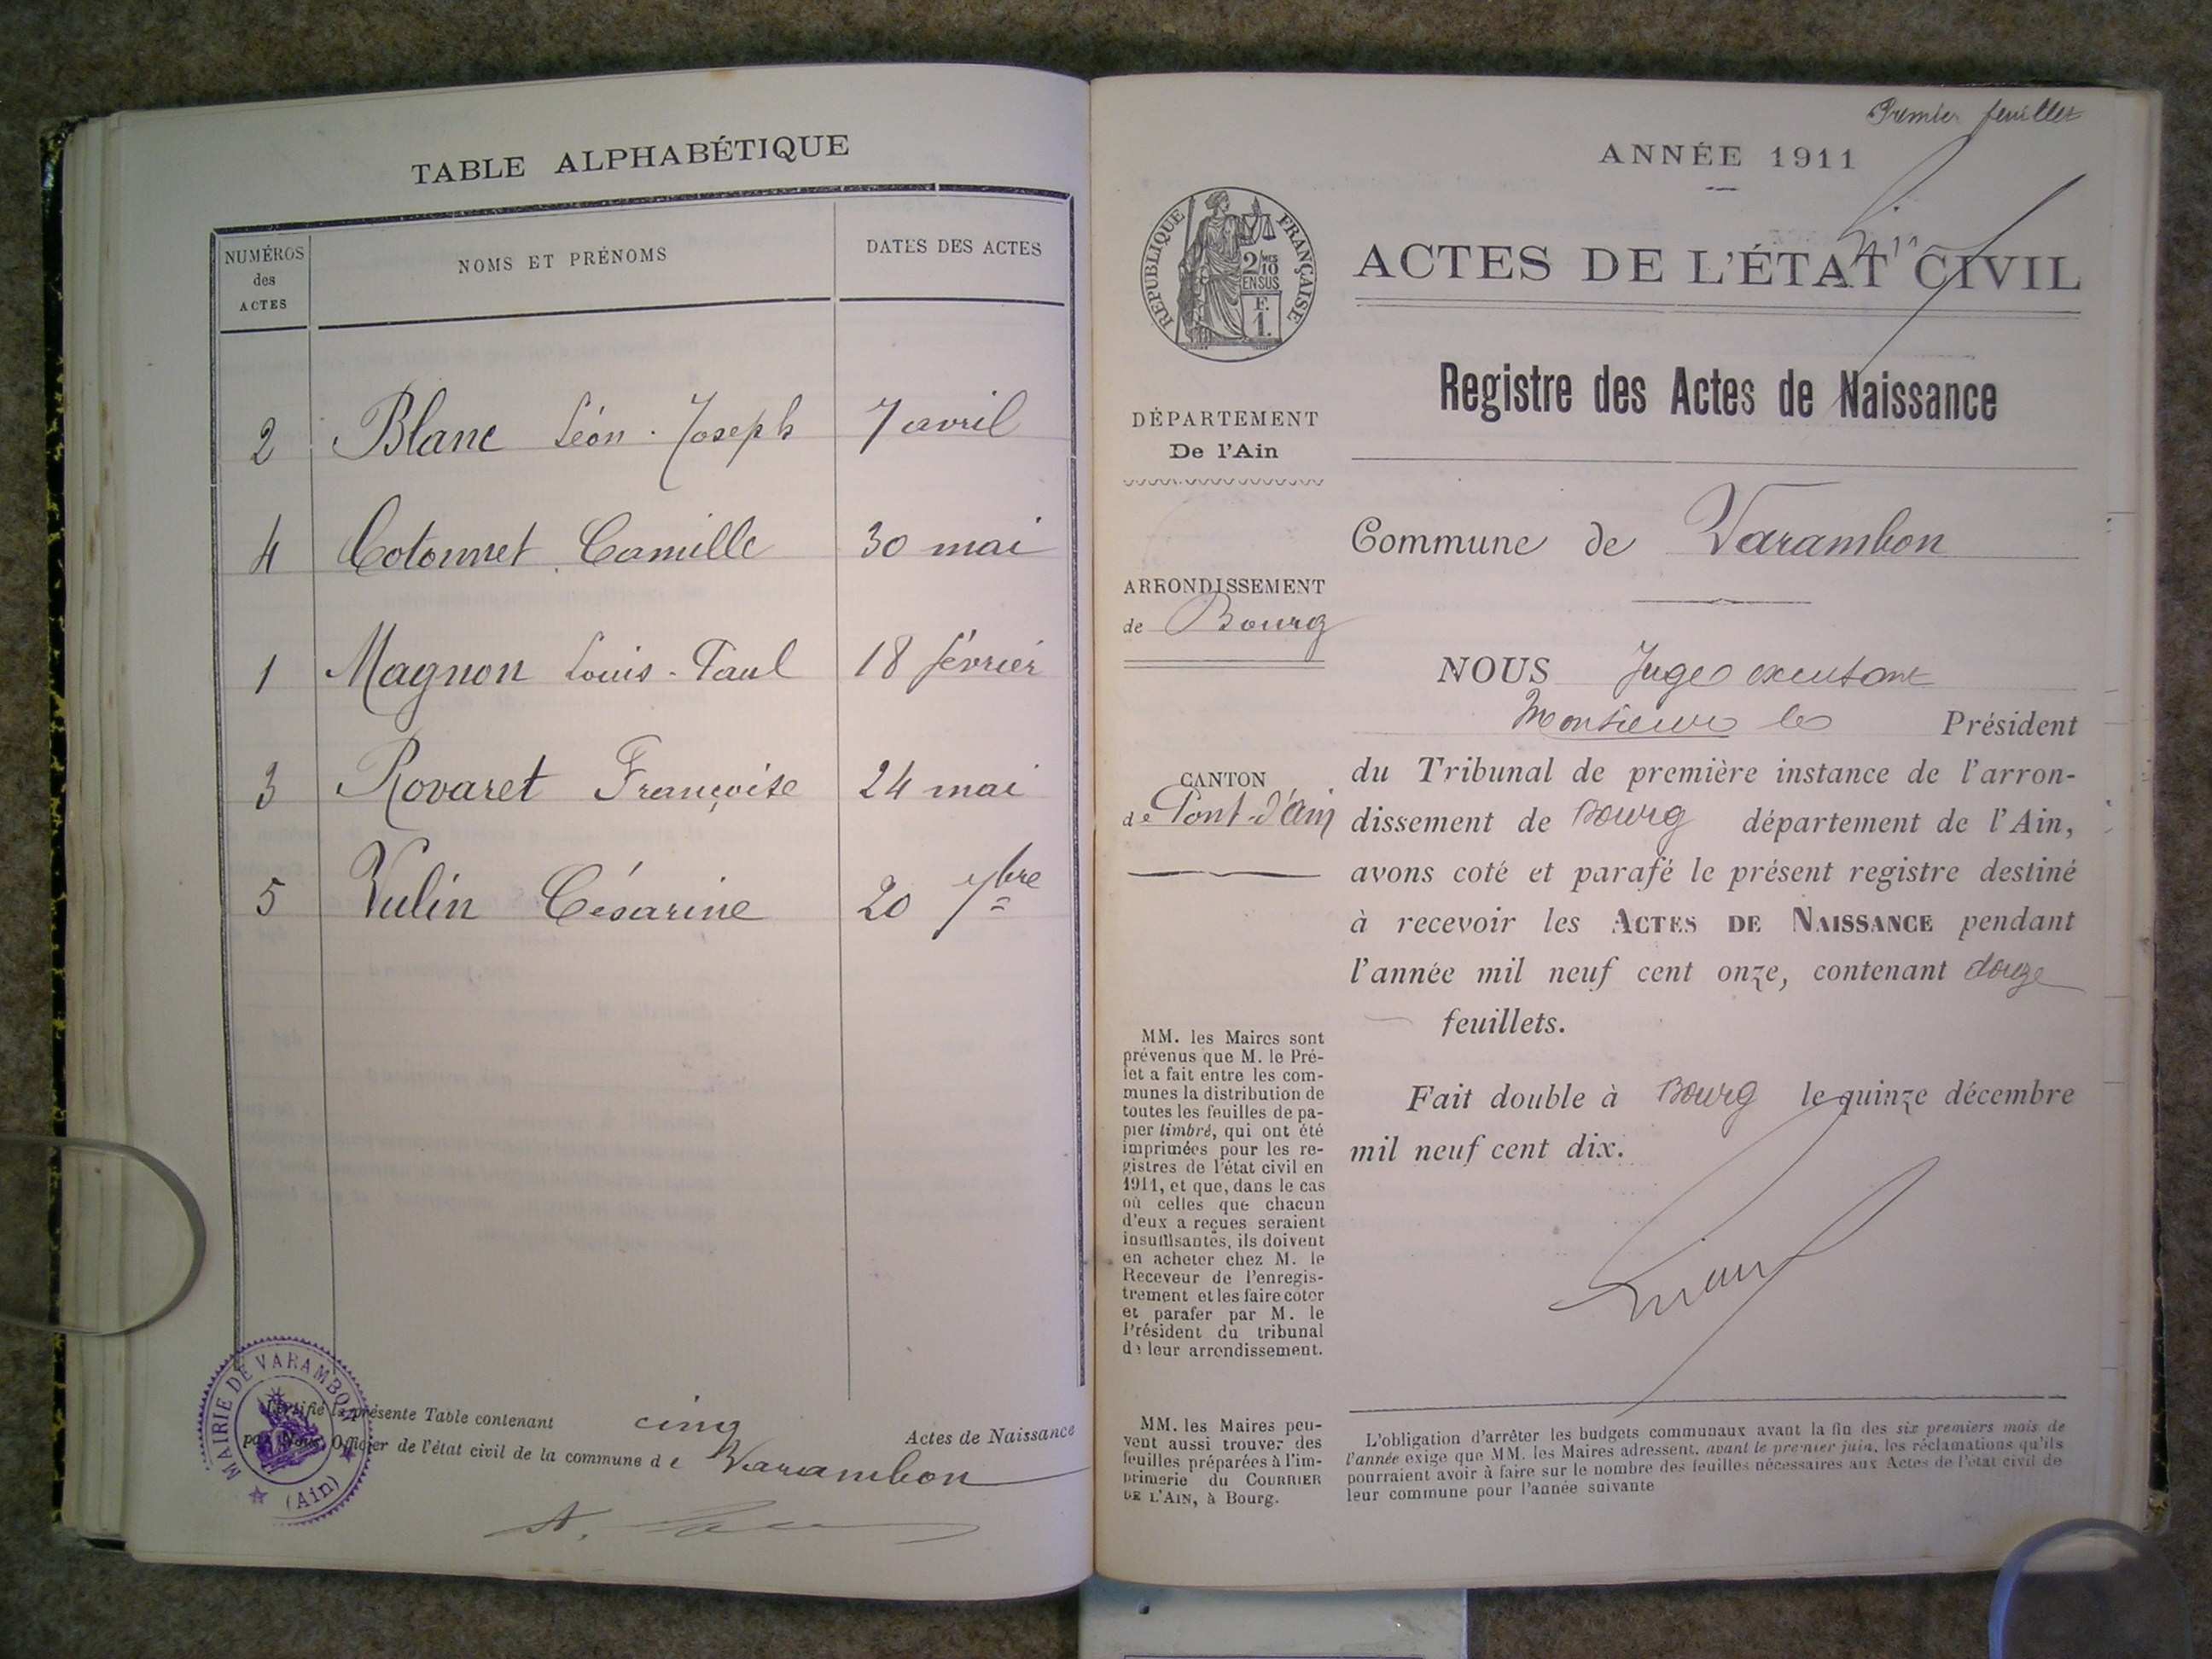 TABLE ALPHABÉTIQUE
NUMÉROS
des
ACTES
NOMS ET PRÉNOMS
DATES DES ACTES
2 Blanc Léon-Joseph 7 avril
4 Cotonnet Camille 30 mai
1 Magnon Louis-Paul 18 février
3 Rovaret Françoise 24 mai
5 Vulin Césarine 20 7bre
MAIRIE DE VARAMBON
(Ain)
Certifié la présente Table contenant cinq Actes de Naissance
par Nous, Officier de l'état civil de la commune de Varambon
Premier feuillet
ANNÉE 1911
RÉPUBLIQUE FRANÇAISE
2/10 MES
EN SUS
F.
1.
ACTES DE L'ÉTAT CIVIL
Registre des Actes de Naissance
DÉPARTEMENT
De l'Ain
Commune de Varambon
ARRONDISSEMENT
de Bourg
CANTON
de Pont-d'Ain
NOUS Juge
Monsieur le Président
du Tribunal de première instance de l'arron-
dissement de Bourg département de l'Ain,
avons coté et parafé le présent registre destiné
à recevoir les ACTES DE NAISSANCE pendant
l'année mil neuf cent onze, contenant douze
feuillets.
Fait double à Bourg le quinze décembre
mil neuf cent dix.
MM. les Maires sont
prévenus que M. le Pré-
fet a fait entre les com-
munes la distribution de
toutes les feuilles de pa-
pier timbré, qui ont été
imprimées pour les re-
gistres de l'état civil en
1911, et que, dans le cas
où celles que chacun
d'eux a reçues seraient
insuffisantes, ils doivent
en acheter chez M. le
Receveur de l'enregis-
trement et les faire coter
et parafer par M. le
Président du tribunal
de leur arrondissement.
MM. les Maires peu-
vent aussi trouver des
feuilles préparées à l'im-
primerie du COURRIER
DE L'AIN, à Bourg.
L'obligation d'arrêter les budgets communaux avant la fin des six premiers mois de
l'année exige que MM. les Maires adressent, avant le premier juin, les réclamations qu'ils
pourraient avoir à faire sur le nombre des feuilles nécessaires aux Actes de l'état civil de
leur commune pour l'année suivante